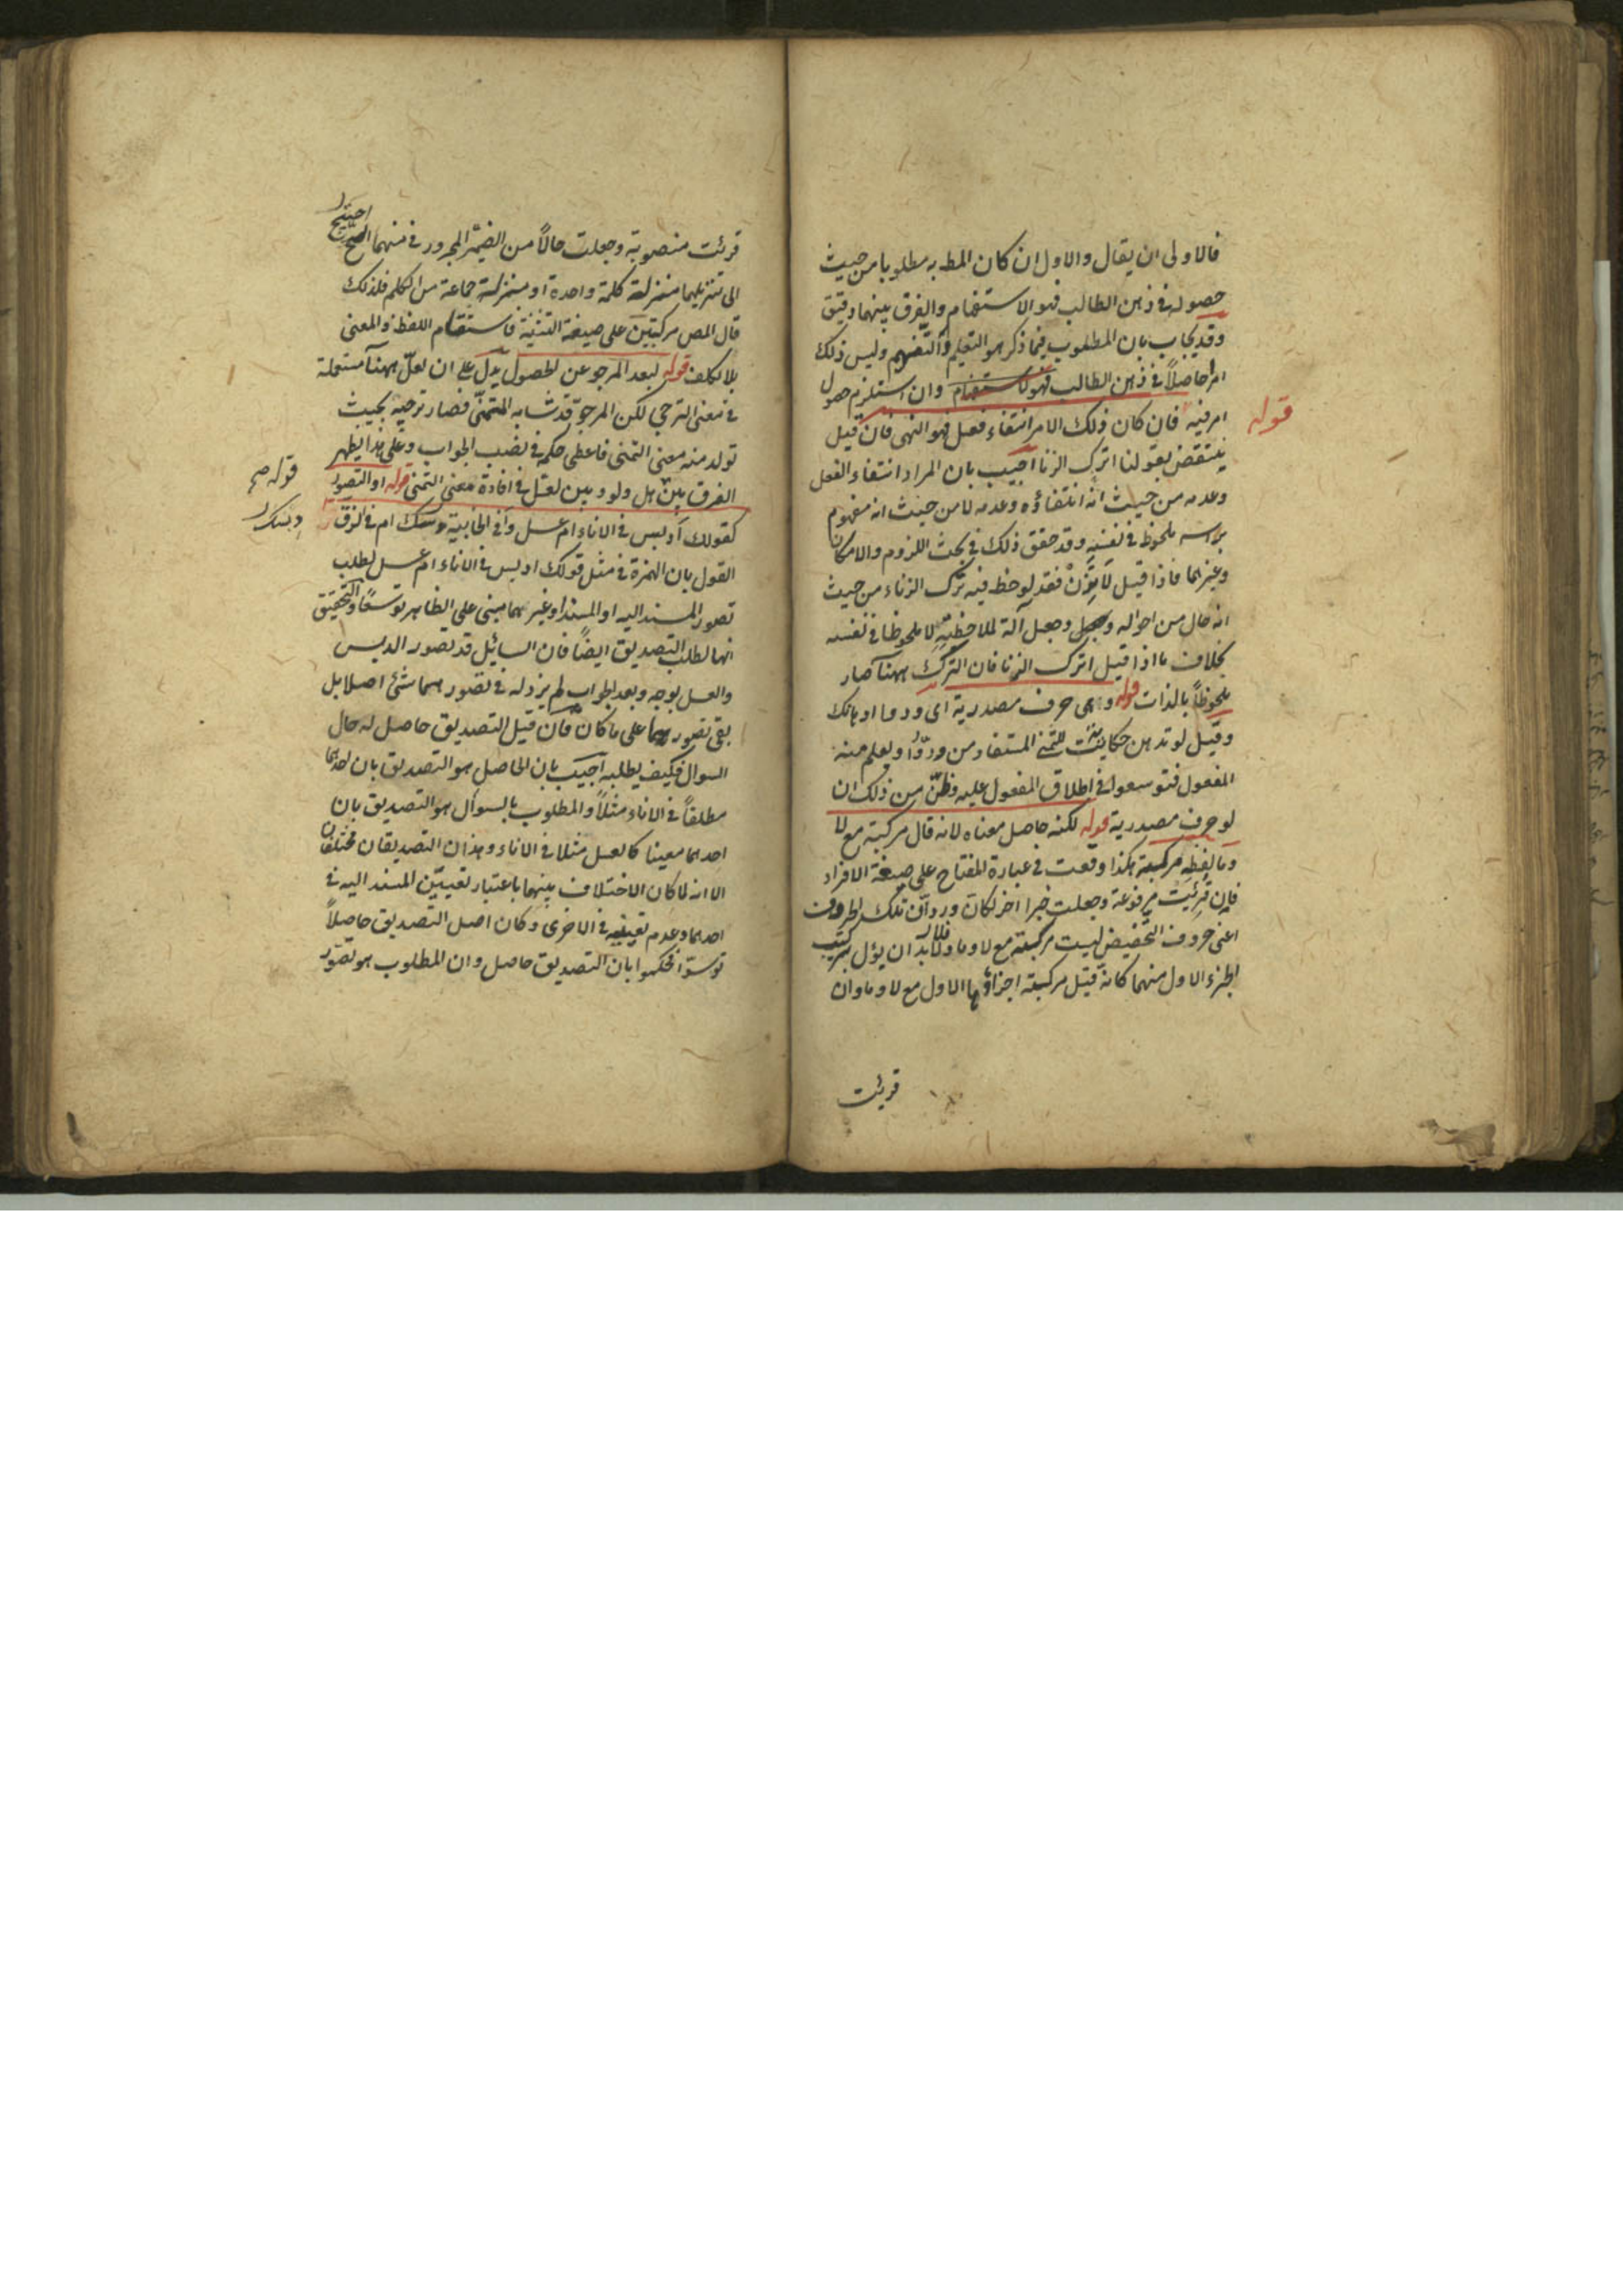 فالاولى ان يقال والاول ان كان المط به مطلوبا من حيث
حصوله فى ذهن الطالب فهو الاستفهام والفرق بينهما دقيق
وقد يجاب بان المطلوب فيما ذكر هو التعليم والتفهيم وليس ذلك
امرا حاصلاً فى ذهن الطالب فهو كاستفهام وان استلزم حصول
قوله
امر فيه فان كان ذلك الامر انتفاء فعل فهو النهى فان قيل
ينتقض بقولنا اترك الزنا اجيب بان المراد انتفاء الفعل
وعدمه من حيث انه انتفاؤه وعدمه لا من حيث انه مفهوم
براسه ملحوظ فى نفسه وقد حقق ذلك فى بحث اللزوم والامكان
وغيرهما فاذا قيل لا تزن فقد لوحظ فيه ترك الزناء من حيث
انه حال من احواله وجعل آلة لملاحظته لا ملحوظا فى نفسه
بخلاف ما اذا قيل اترك الزنا فان الترك ههنا صار
ملحوظاً بالذات قوله وهى حرف مصدرية اى ودوا ادهانك
وقيل لو تدهن حكاية للتمنى المستفاد من ودّوا ويعلم منه
المفعول فتوسعوا فى اطلاق المفعول عليه وظنّ من ذلك ان
لو حرف مصدرية قوله لكنه حاصل معناه لانه قال مركبة مع لا
وما لفظه مركبة هكذا وقعت فى عبارة المفتاح على صيغة الافراد
فان قرئت مرفوعة وجعلت خبرا اخر لكان ورد ان تلك الحروف
اعنى حروف التحضيض ليست مركبة مع لا وما فلا بد ان يؤل بتركيب
الجزء الاول منهما كانه قيل مركبة اجزاؤها الاول مع لا وما وان
قرئت
قرئت منصوبة وجعلت حالاً من الضمير المجرور فى منهما احتيج
الى تنزيلهما منزلة كلمة واحدة او منزلة جماعة من الكلم فلذلك
قال المص مركبتين على صيغة التثنية فاستقام اللفظ والمعنى
بلا تكلف قوله لبعد المرجو عن الحصول يدل على ان لعلّ ههنا مستعملة
فى معنى الترجى لكن المرجوّ قد شابه المتمنّى فصار ترجيه بحيث
تولد منه معنى التمنى فاعطى حكمه فى نصب الجواب وعلى هذا يظهر
الفرق بين هل ولو وبين لعل فى افادة معنى التمنى قوله او التصور
قوله صح
كقولك أدبس فى الاناء ام عسل وأفى الخابية دبسك ام فى الزق
دبسك
القول بان الهمزة فى مثل قولك ادبس فى الاناء ام عسل لطلب
تصور المسند اليه او المسند او غيرهما مبنى على الظاهر توسعًا والتحقيق
انها لطلب التصديق ايضًا فان السائل قد تصور الدبس
والعسل بوجه وبعد الجواب لم يزد له فى تصورهما شئ اصلا بل
بقى تصورهما على ما كان فان قيل التصديق حاصل له حال
السوال فكيف يطلبه اجيب بان الحاصل هو التصديق بان احدهما
مطلقاً فى الاناء مثلاً والمطلوب بالسوأل هو التصديق بان
احدهما معينا كالعسل مثلا فى الاناء وهذان التصديقان مختلفان
الا انه لما كان الاختلاف بينهما باعتبار تعيين المسند اليه فى
احدهما وعدم تعيينه فى الاخرى وكان اصل التصديق حاصلاً
توسعوا فحكموا بان التصديق حاصل وان المطلوب هو تصور